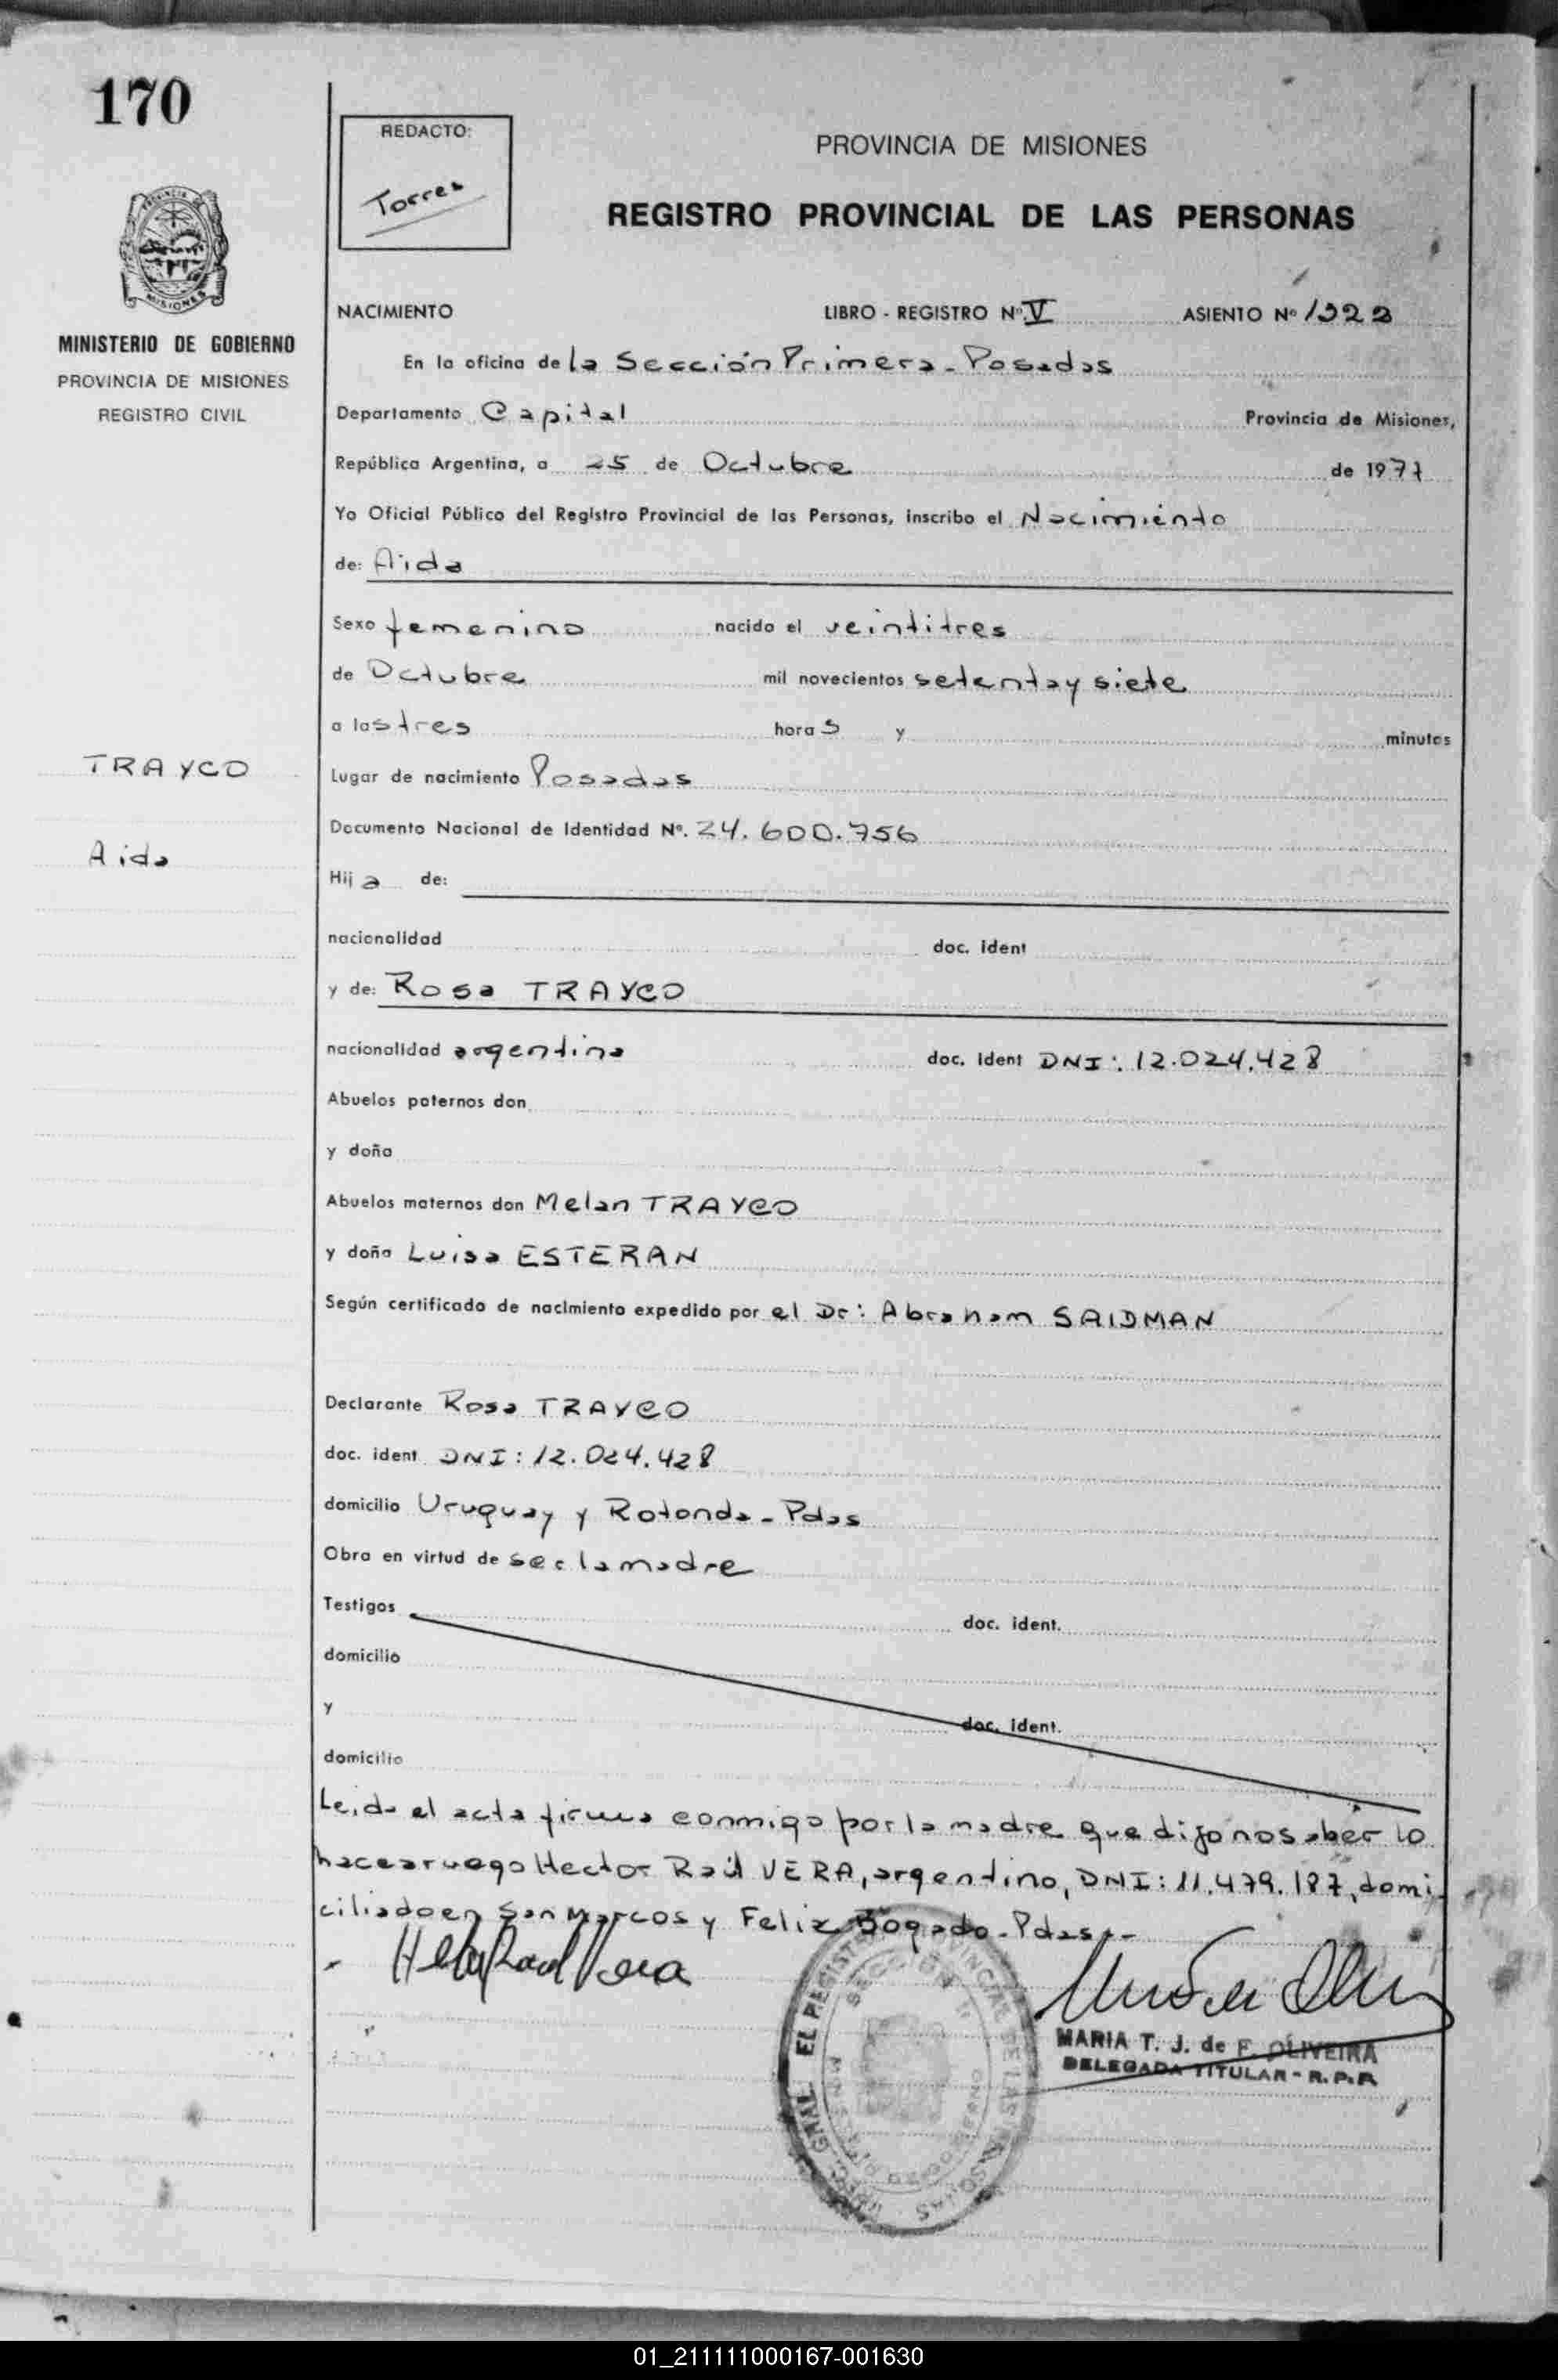 170
REDACTO:
Torres
PROVINCIA DE MISIONES
REGISTRO PROVINCIAL DE LAS PERSONAS
MISIONES
MINISTERIO DE GOBIERNO
PROVINCIA DE MISIONES
REGISTRO CIVIL
NACIMIENTO LIBRO - REGISTRO Nº V ASIENTO Nº
En la oficina de la Sección Primera - Posadas
Departamento Capital Provincia de Misiones,
República Argentina, a 25 de Octubre de 1977
Yo Oficial Público del Registro Provincial de las Personas, inscribo el Nacimiento
de: Aida
Sexo femenino nacido el veintitres
de Octubre mil novecientos setenta y siete
a las tres horas y minutos
TRAYCO
Lugar de nacimiento Posadas
Documento Nacional de Identidad Nº. 24.600.756
Aida
Hija de:
nacionalidad doc. ident
y de: Rosa TRAYCO
nacionalidad argentina doc. ident DNI: 12.024.428
Abuelos paternos don
y doña
Abuelos maternos don Melan TRAYCO
y doña Luisa ESTERAN
Según certificado de nacimiento expedido por el Dr: Abraham SAIDMAN
Declarante Rosa TRAYCO
doc. ident DNI: 12.024.428
domicilio Uruguay y Rotonda - Pdas
Obra en virtud de ser la madre
Testigos doc. ident.
domicilio
y doc. ident.
domicilio
Leida el acta firma conmigo por la madre que dijo no saber lo
hace a ruego Hector Raúl VERA, argentino, DNI: 11.479.187, domi
ciliado en San Marcos y Felix Bogado - Pdas.-
MARIA T. J. de F. OLIVEIRA
DELEGADA TITULAR - R.P.P.
01_211111000167-001630